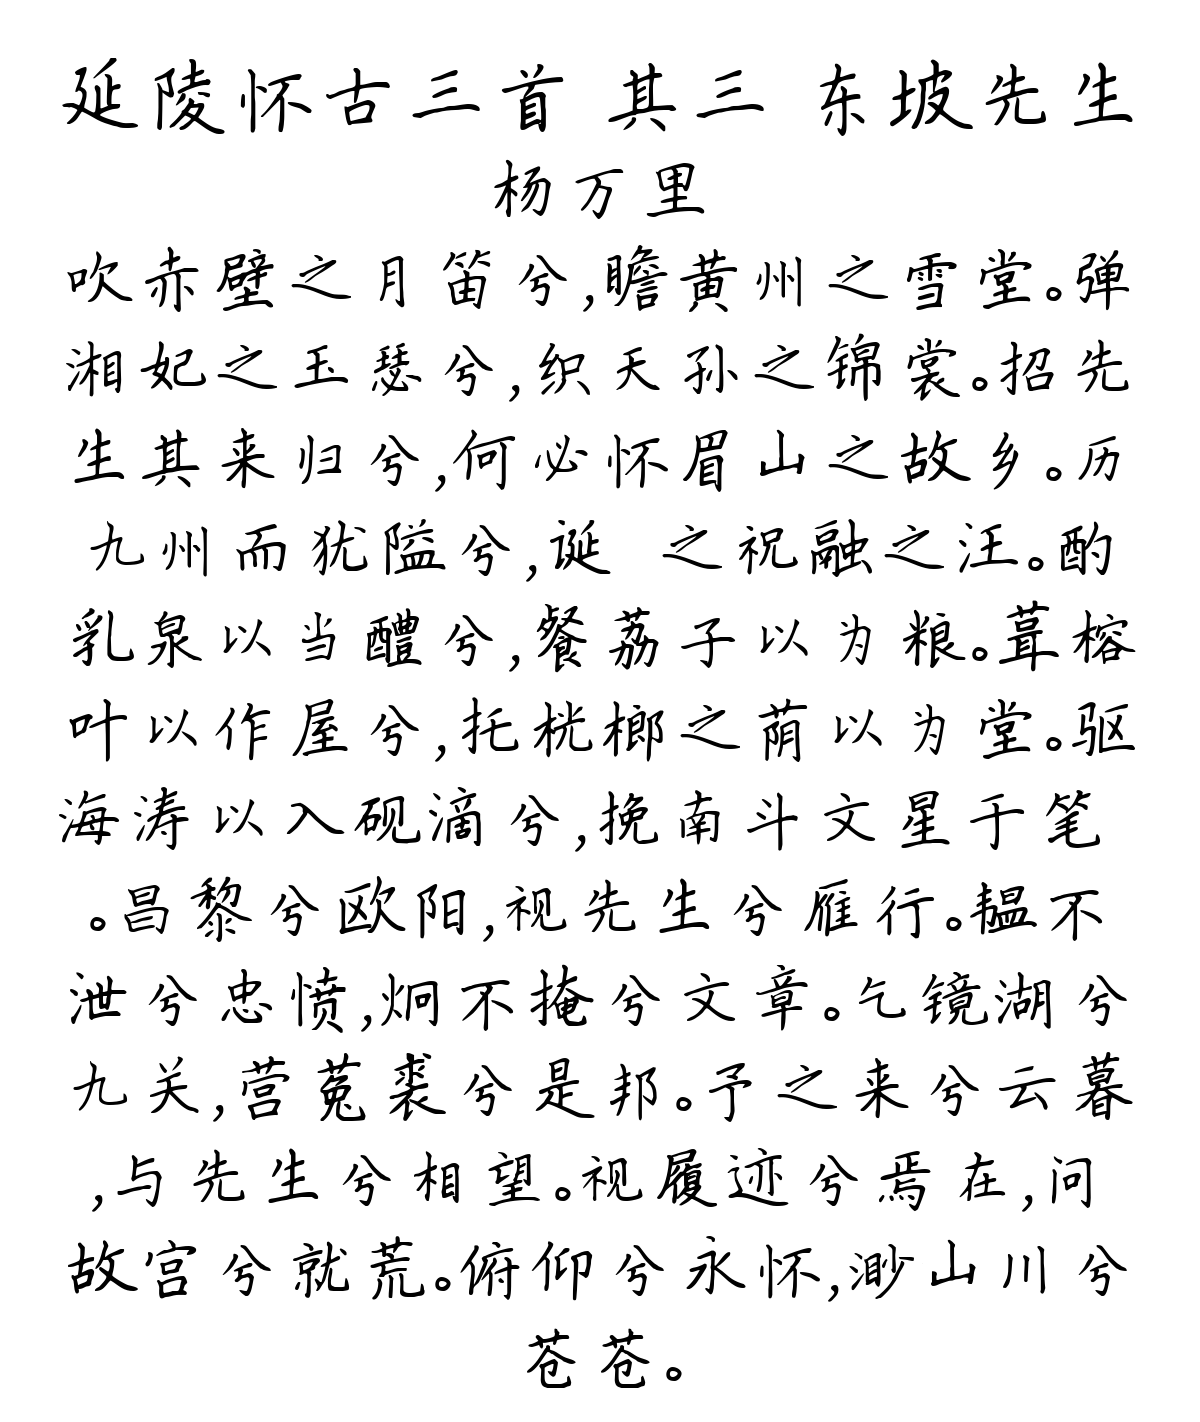 延陵怀古三首 其三 东坡先生
杨万里
吹赤壁之月笛兮,瞻黄州之雪堂。弹
湘妃之玉瑟兮,织天孙之锦裳。招先
生其来归兮,何必怀眉山之故乡。历
九州而犹隘兮,诞 之祝融之汪。酌
乳泉以当醴兮,餐荔子以为粮。葺榕
叶以作屋兮,托桄榔之荫以为堂。驱
海涛以入砚滴兮,挽南斗文星于笔
。昌黎兮欧阳,视先生兮雁行。韫不
泄兮忠愤,炯不掩兮文章。乞镜湖兮
九关,营菟裘兮是邦。予之来兮云暮
,与先生兮相望。视履迹兮焉在,问
故宫兮就荒。俯仰兮永怀,渺山川兮
苍苍。